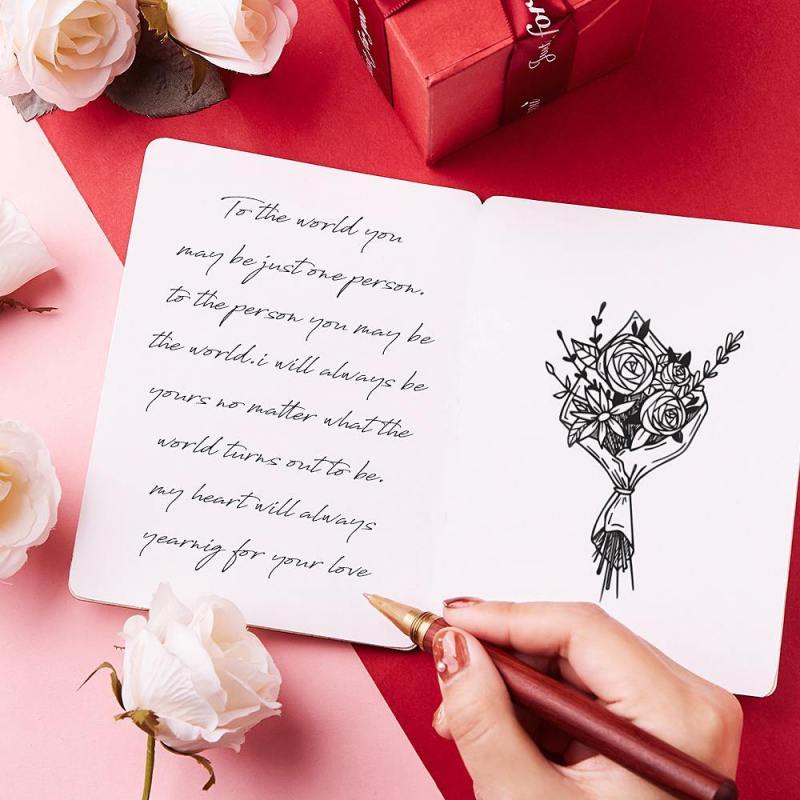 Just for
To the world you
may be just one person.
to the person you may be
the world.i will always be
yours no matter what the
world turns out to be.
my heart will always
yearnig for your love